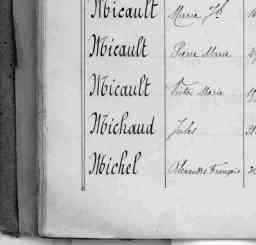 Micault Maria Jh
Micault Pierre Marie
Micault Victor Marie
Michaud Jules
Michel Alexandre François